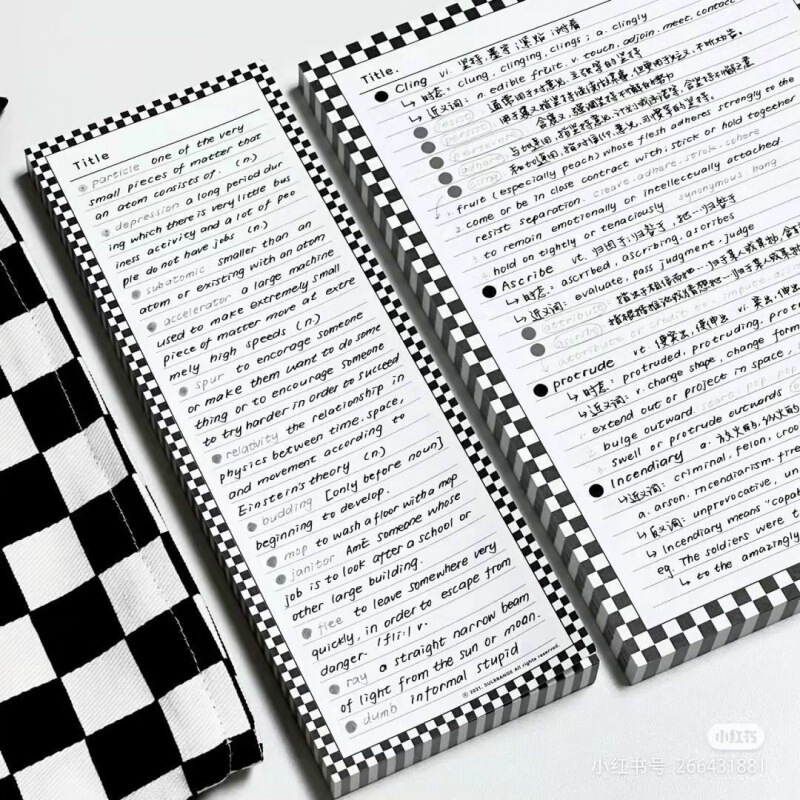 Title
particle one of the very
small pieces of matter that
an atom consists of. (n.)
depression a long period dur
ing which there is very little bus
iness activity and a lot of peo
ple do not have jobs (n.)
subatomic smaller than an
atom or existing with an atom
accelerator a large machine
used to make extremely small
piece of matter move at extre
mely high speeds (n.)
spur to encorage someone
or make them want to do some
thing or to encourage someone
to try harder in order to succeed
relativity the relationship in
physics between time, space,
and movement according to
Einstein's theory (n.)
budding [only before noun]
beginning to develop.
mop to wash a floor with a mop
janitor AmE someone whose
job is to look after a school or
other large building.
flee to leave somewhere very
quickly, in order to escape from
danger. /fli:/ v.
ray a straight narrow beam
of light from the sun or moan.
dumb informal stupid
© 2021. SULBRANDS All rights reserved.
Title.
Cling vi. 坚持,墨守;紧贴;附着
↳ 时态: clung, clinging, clings; a. clingly
↳ 近义词: n. edible fruit. v. touch. adjoin. meet. contact
insist
persist
persevere
adhere
cling
fruit (especially peach) whose flesh adheres strongly to the
come or be in close contact with; stick or hold together
resist separation. cleave. adhere. stick. cohere
to remain emotionally or intellectually attached.
hold on tightly or tenaciously synonymous hang
Ascribe vt. 归因于;归咎于, 把…归咎于
↳ 时态: ascribed, ascribring, ascribes
↳ 近义词: evaluate, pass judgment. judge
attribute
ascribe
attribute or credit to. impute
protrude vt 使突出, 使伸出 vi. 突出, 伸出
↳ 时态: protruded, protruding, pro
↳ 近义词: v. change shape, change form
extend out or project in space,
bulge outward.
swell or protrude outwards
Incendiary a. 放火的, 纵火的
↳ 近义词: criminal, felon, croo
a. arson, incendiarism. fire
↳ 反义词: unprovocative, un
↳ Incendiary means "capa
eg. The soldiers were t
↳ to the amazingly
小红书
小红书号 266431881